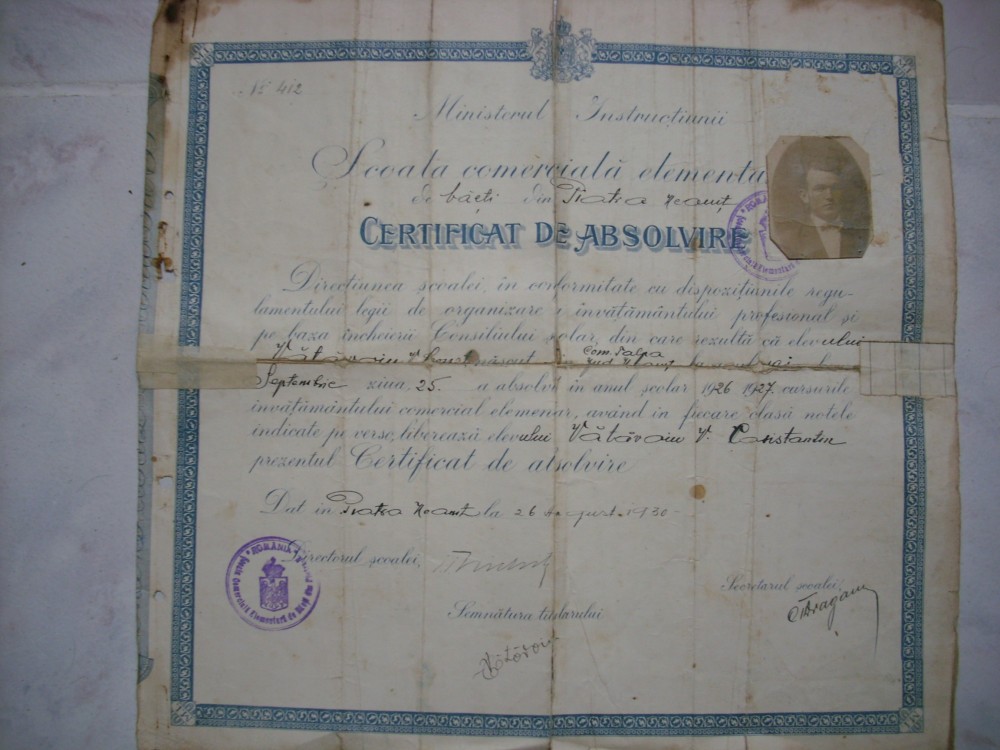 № 412
Ministerul Instrucțiunii
Școala comercială elementa
de băeți din Piatra Neamț
CERTIFICAT DE ABSOLVIRE
Direcțiunea școalei, in conformitate cu dispozițiunile regu-
lamentului legii de organizare a invătământului profesional și
pe baza incheierii Consiliului școlar, din care rezultă că elevului
Vătăvoiu V. născut Com. Talpa
Septembrie ziua 25 a absolvit in anul școlar 1926 1927 cursurile
invătământului comercial elemenar, având in fiecare clasă notele
indicate pe verso, liberează elevului Vătăvoiu V. Constantin
prezentul Certificat de absolvire
Dat in Piatra Neamț la 26 August 1930
Directorul școalei,
Secretarul școalei,
Semnătura titularului
ROMÂNIA
ROMÂNIA